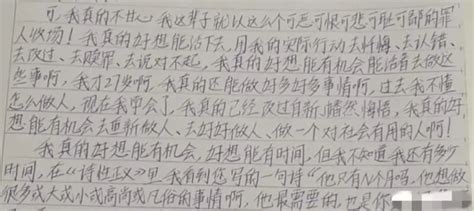 可,我真的不甘心,我这辈子就以这么个可恶可恨可悲可耻可鄙的罪
人收场!我真的好想能活下去,用我的实际行动去忏悔、去认错、
去改过、去赎罪、去说对不起,我真的好想能有机会能活着去做这
些事啊,我才27岁啊,我真的还能做好多好多事情啊,过去我不懂
怎么做人,现在我学会了,我真的已经改过自新幡然悔悟,我真的好
想能有机会去重新做人、去好好做人、做一个对社会有用的人啊!
我真的好想能有机会,好想能有时间,但我不知道我还有多少
时间,在《诗性正义》里我看到您写的一句诗“他只有N个月吗,他想做
很多或大或小或高尚或凡俗的事情啊,他最需要的也是你